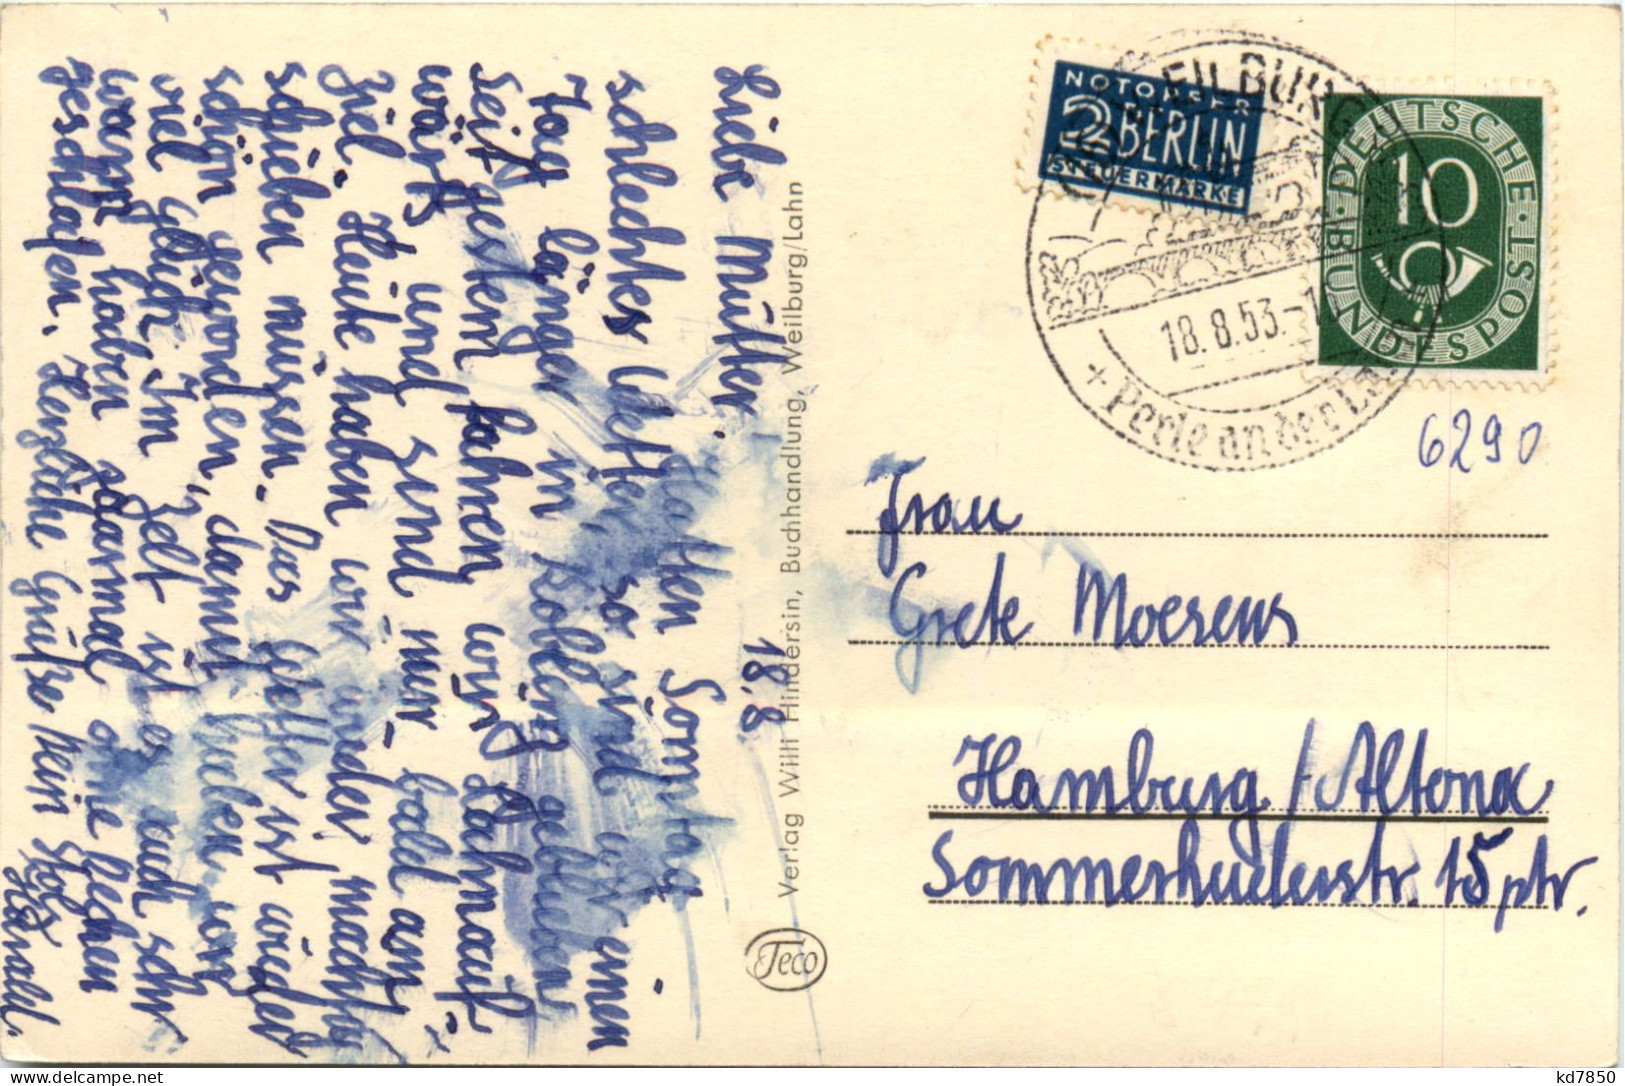 18.8.
Liebe Mutter. Hatten Sonntag
schlechtes Wetter so sind wir einen
Tag länger in Koblenz geblieben
Seit gestern fahren wir Lahnauf-
wärts und sind nur bald am
Ziel. Heute haben wir wieder mächtig
schieben müssen. Das Wetter ist wieder
schön geworden, damit haben wir
viel Glück. Im Zelt ist es auch sehr
warm, haben sogarmal ohne Decken
geschlafen. Herzliche Grüße Dein
Harald.
Verlag Willi Hindersin, Buchhandlung, Weilburg/Lahn
Teco
NOTOPFER
2 BERLIN
STEUERMARKE
WEILBURG
18.8.53.-1
+ Perle an der Lahn
DEUTSCHE
BUNDESPOST
10
6290
Frau
Grete Moerens
Hamburg / Altona
Sommerhuderstr. 15 ptr.
kd7850